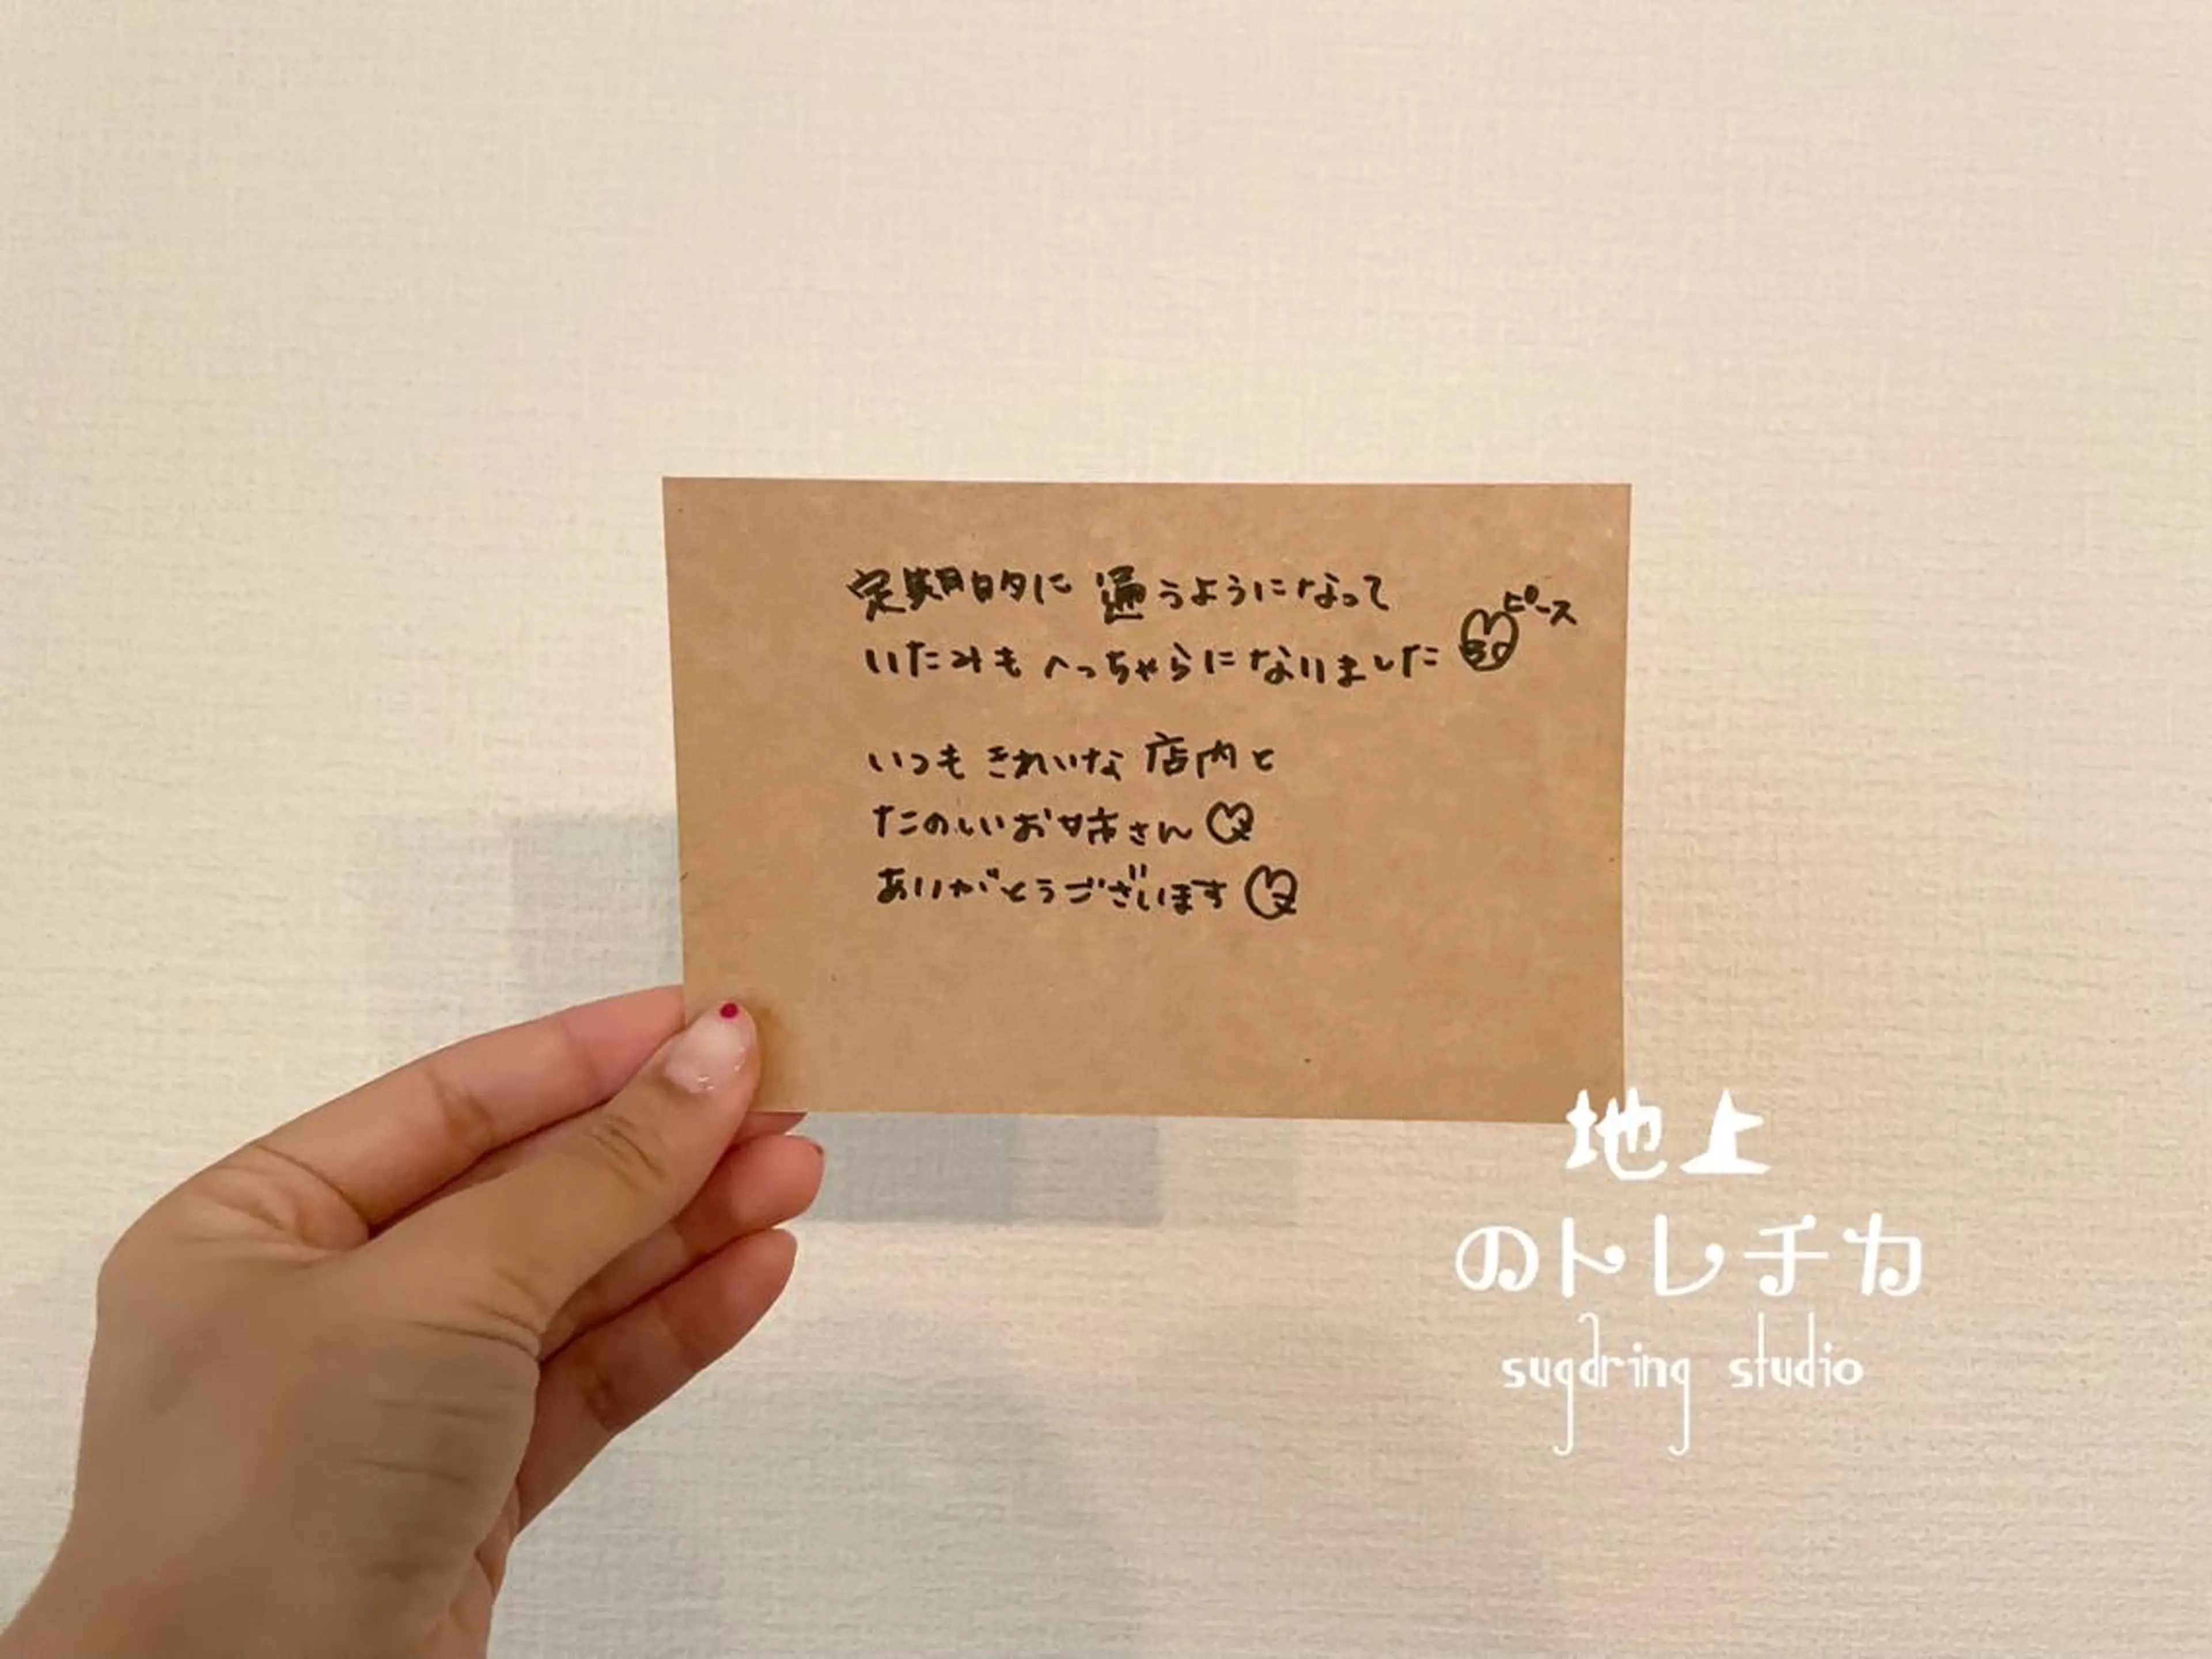 定期的に 通うようになって
いたみも へっちゃらになりました
ピース
いつも きれいな 店内と
たのしいお姉さん
ありがとうございます
地上
のトレチカ
sugaring studio